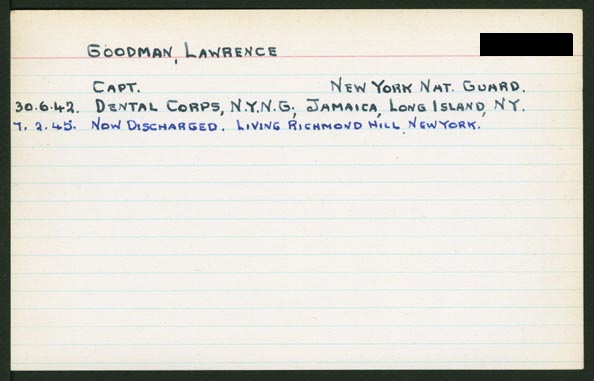 GOODMAN, LAWRENCE
CAPT. NEW YORK NAT. GUARD.
30.6.42. DENTAL CORPS, N.Y.N.G., JAMAICA, LONG ISLAND, NY.
7. 2. 45. NOW DISCHARGED. LIVING RICHMOND HILL, NEW YORK.